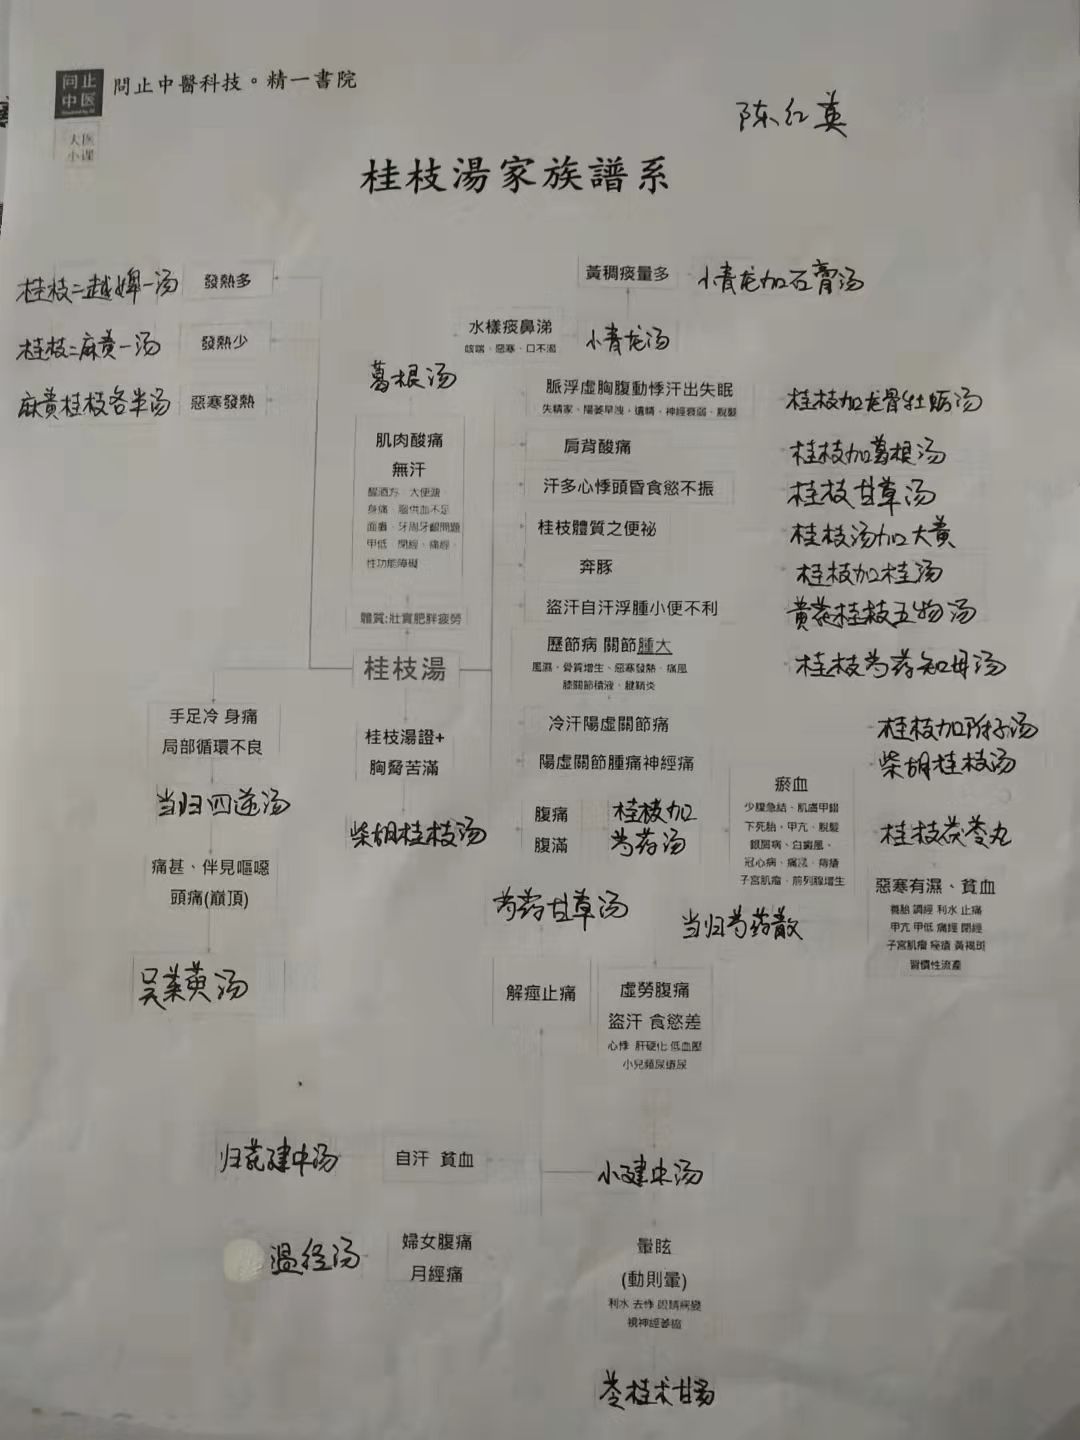 问止
中医
問止中醫科技。精一書院
大医
小课
陈红英
桂枝湯家族譜系
桂枝二越婢一汤
發熱多
桂枝二麻黄一汤
發熱少
麻黄桂枝各半汤
惡寒發熱
黃稠痰量多
小青龙加石膏汤
水樣痰鼻涕
咳喘、惡寒、口不渴
小青龙汤
葛根汤
肌肉酸痛
無汗
醒酒方 大便溏
身痛、腦供血不足
面癱、牙周牙齦問題
甲低 閉經、痛經、
性功能障礙
體質:壯實肥胖疲勞
桂枝湯
脈浮虛胸腹動悸汗出失眠
失精家、陽萎早洩、遺精、神經衰弱、脫髮
桂枝加龙骨牡蛎汤
肩背酸痛
桂枝加葛根汤
汗多心悸頭昏食慾不振
桂枝甘草汤
桂枝體質之便祕
桂枝汤加大黄
奔豚
桂枝加桂汤
盜汗自汗浮腫小便不利
黄芪桂枝五物汤
歷節病 關節腫大
風濕、骨質增生、惡寒發熱、痛風
膝關節積液、腱鞘炎
桂枝芍药知母汤
冷汗陽虛關節痛
桂枝加附子汤
陽虛關節腫痛神經痛
柴胡桂枝汤
手足冷 身痛
局部循環不良
当归四逆汤
痛甚、伴見嘔噁
頭痛(巔頂)
吴茱萸汤
桂枝湯證+
胸脅苦滿
柴胡桂枝汤
腹痛
腹滿
桂枝加
芍药汤
瘀血
少腹急結、肌膚甲錯
下死胎、甲亢、脫髮
銀屑病、白癜風、
冠心病、痛經、痔瘡
子宮肌瘤、前列腺增生
桂枝茯苓丸
惡寒有濕、貧血
養胎 調經 利水 止痛
甲亢 甲低 痛經 閉經
子宮肌瘤 痤瘡 黃褐斑
習慣性流產
芍药甘草汤
当归芍药散
解痙止痛
虛勞腹痛
盜汗 食慾差
心悸 肝硬化 低血壓
小兒頻尿遺尿
归芪建中汤
自汗 貧血
小建中汤
温经汤
婦女腹痛
月經痛
暈眩
(動則暈)
利水 去悸 眼睛病變
視神經萎縮
苓桂术甘汤